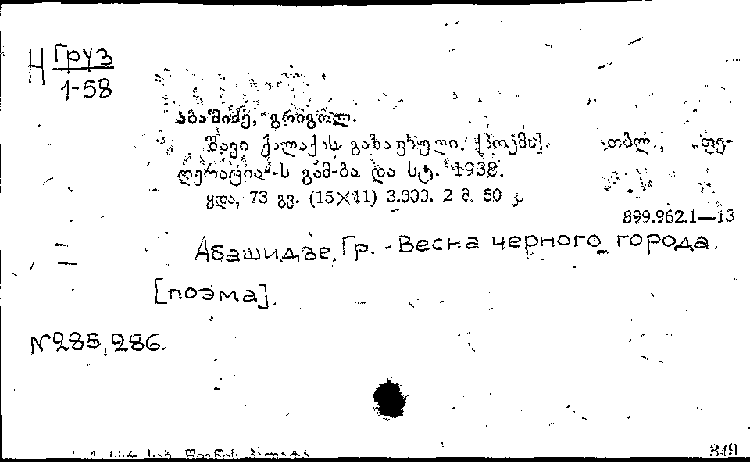 Н Груз
1-58
აბაშიძე, გრიგოლ.
შავი ქალაქის გაზაფხული. [პოემა]. თბლ., „ფე-
დერაცია“-ს გამ-ბა და სტ. 1938.
ყდა, 73 გვ. (15×11) 3.000. 2 მ. 50 კ.
899.962.1—13
Абашидзе, Гр. - Весна черного города.
[поэма].
№285, 286.
849